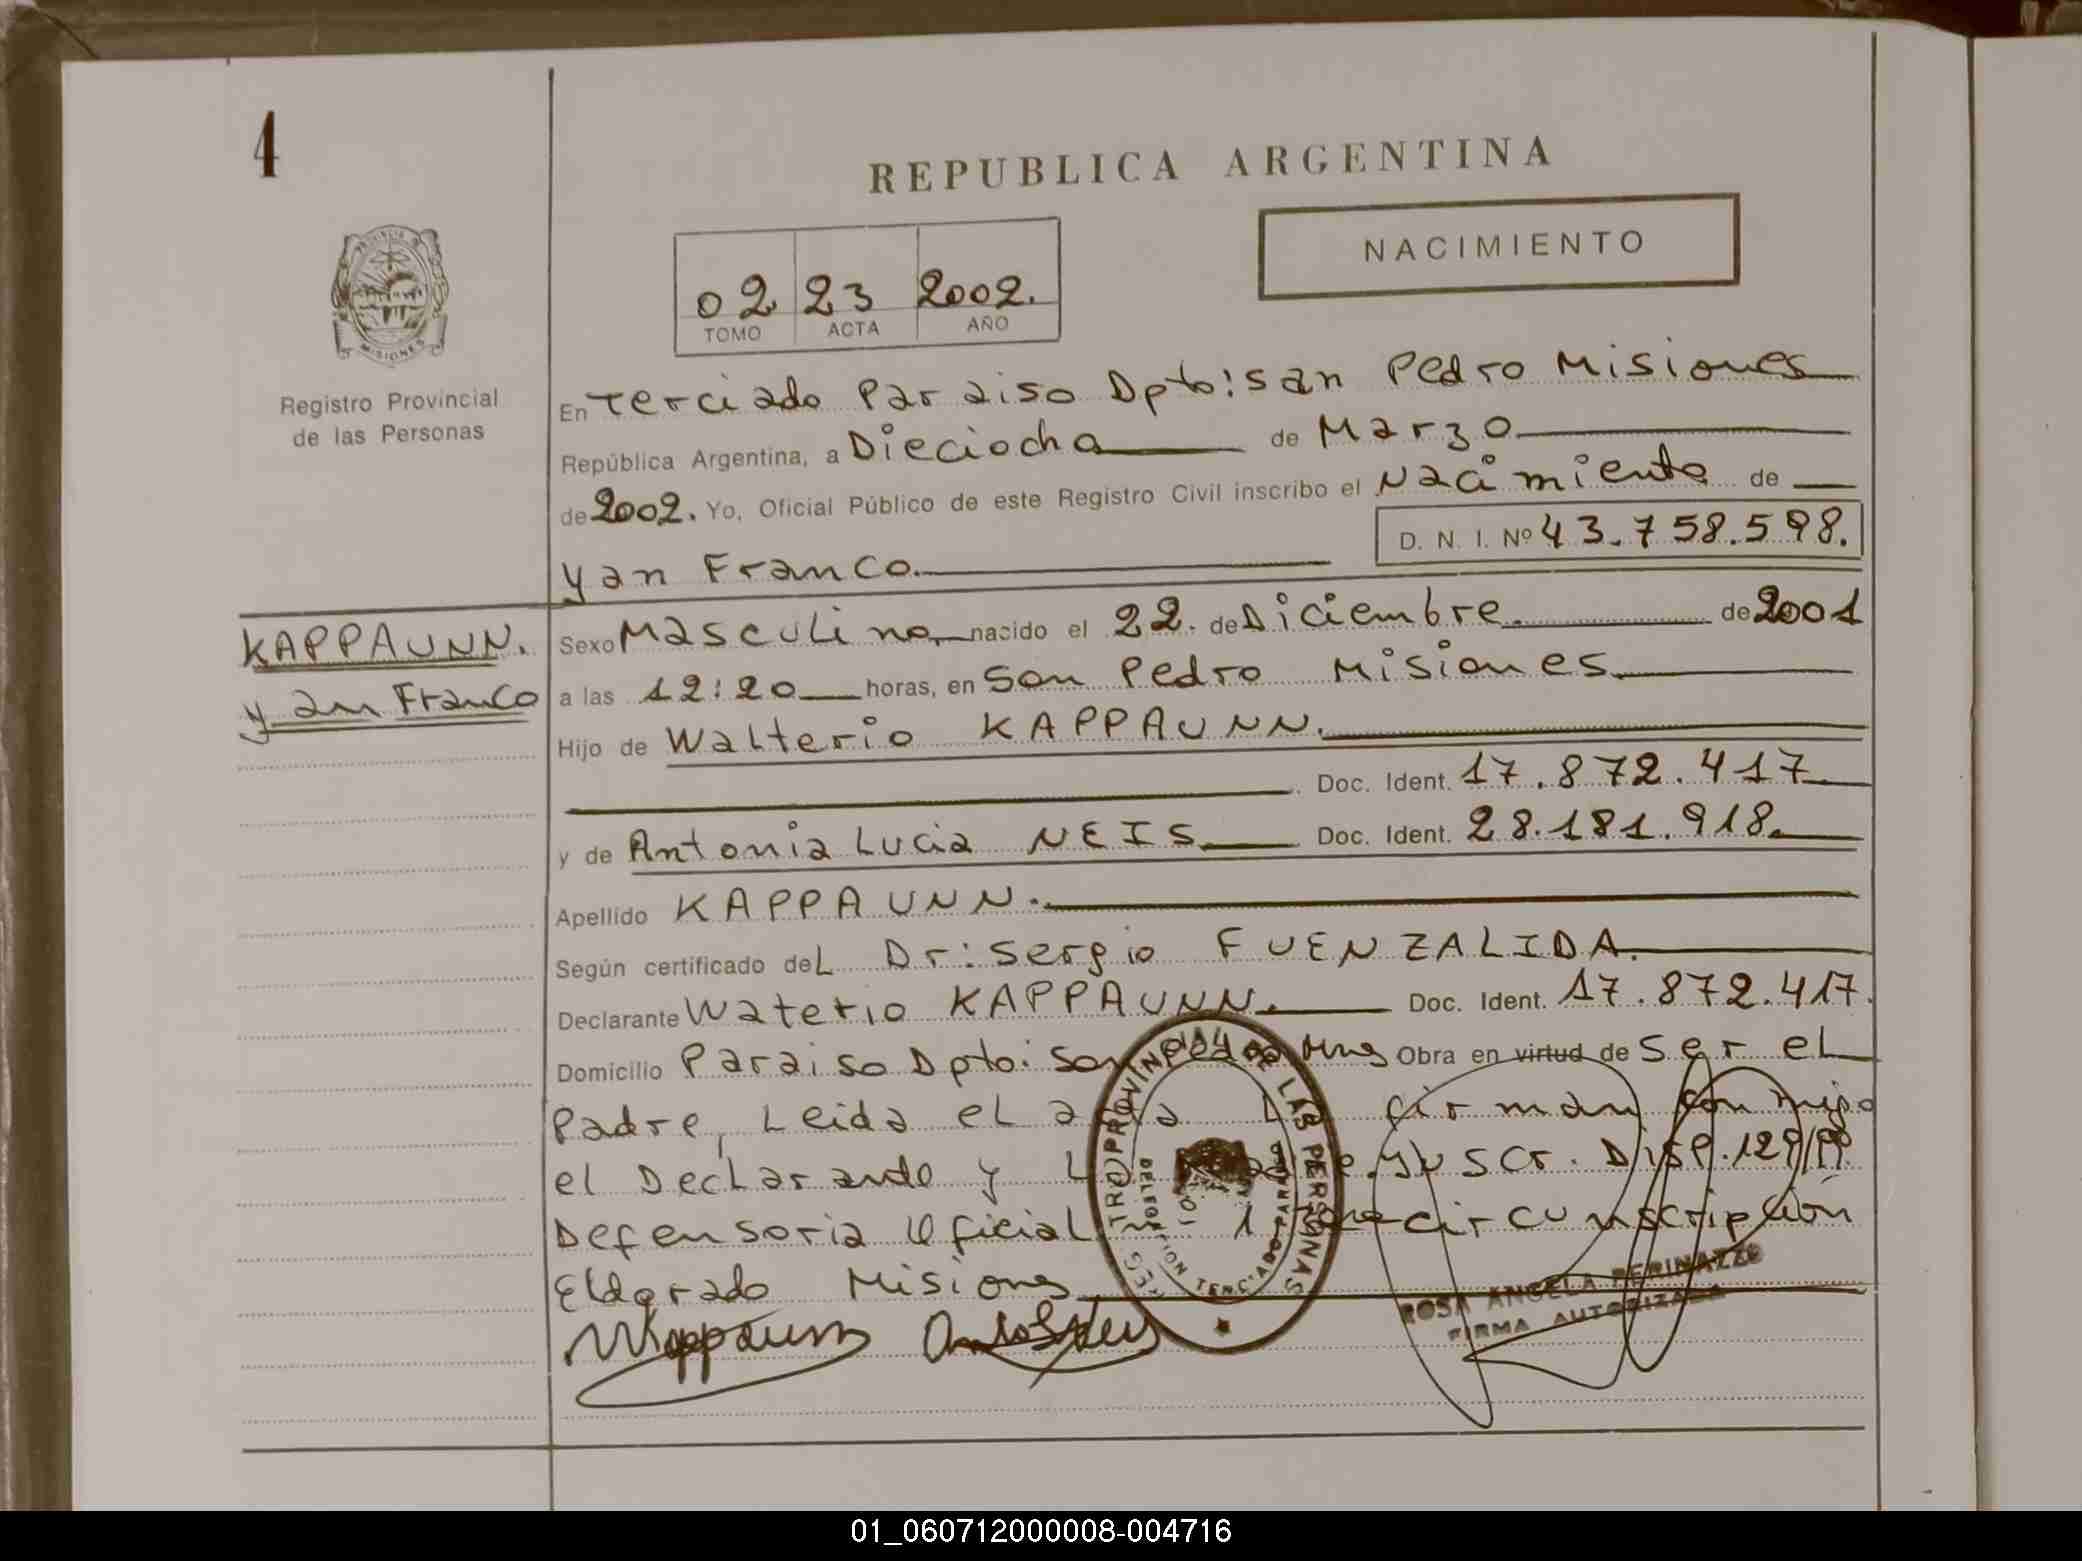 4
REPUBLICA ARGENTINA
NACIMIENTO
02 23 2002.
TOMO ACTA AÑO
PROVINCIA DE MISIONES
Registro Provincial
de las Personas
En Terciado Paraiso Dpto: san Pedro Misiones
República Argentina, a Dieciocho de Marzo
de 2002. Yo, Oficial Público de este Registro Civil inscribo el Nacimiento de
D. N. I. Nº 43.758.598.
yan Franco.
KAPPAUNN.
yan Franco
Sexo Masculino, nacido el 22. de Diciembre. de 2001
a las 12:20 horas, en San Pedro Misiones.
Hijo de Walterio KAPPAUNN.
Doc. Ident. 17.872.417
y de Antonia Lucia NEIS Doc. Ident. 28.181.918.
Apellido KAPPAUNN.
Según certificado deL Dr: Sergio FUENZALIDA.
Declarante Waterio KAPPAUNN. Doc. Ident. 17.872.417.
Domicilio Paraiso Dpto: San Pedro Mns Obra en virtud de Ser el
Padre, Leida el acta La firman conmigo
el Declarante y La Madre. Juscr. Disp. 129/99
Defensoria Oficial 1 circunscripción
Eldorado Misiones
REGISTRO PROVINCIAL DE LAS PERSONAS
DELEGACION TERCIADO PARAISO
WKappaunn
ROSA ANGELA PERINAZZO
FIRMA AUTORIZADA
01_060712000008-004716